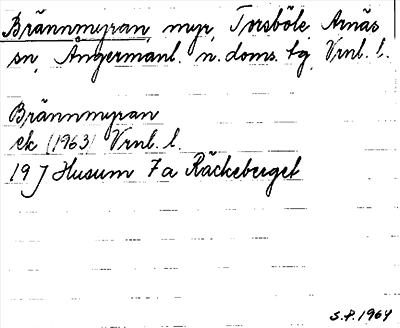 Brännmyran, myr, Torsböle, Arnäs
sn, Ångermanl. n. doms. tg, Vrnl. l.
Brännmyran
ek (1963) Vrnl. l.
19 J Husum 7a Räckeberget
S.P. 1964